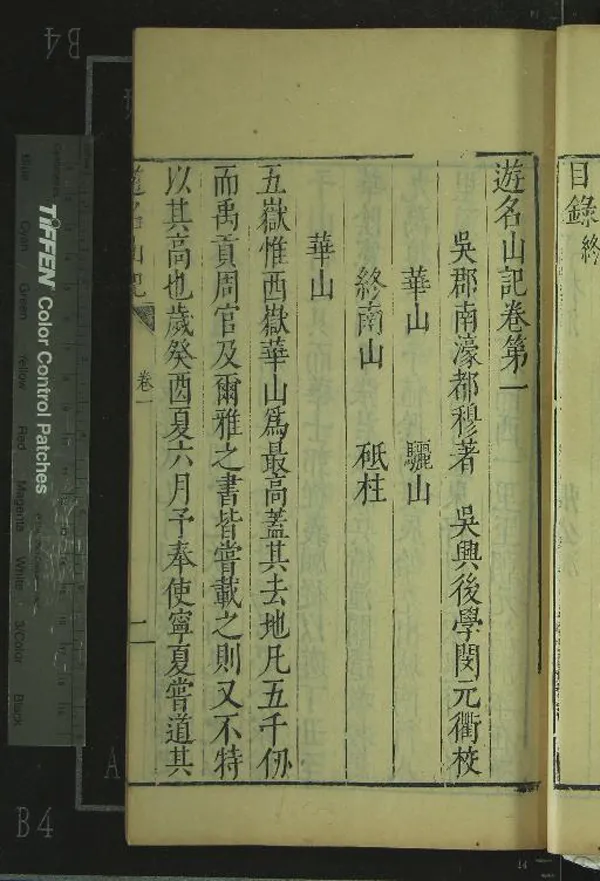 目錄終
遊名山記卷第一
吳郡南濠都穆著 吳興後學閔元衢校
華山 驪山
終南山 砥柱
華山
五嶽惟西嶽華山爲最高蓋其去地凡五千仞
而禹貢周官及爾雅之書皆嘗載之則又不特
以其高也歲癸酉夏六月予奉使寧夏嘗道其
遊名山記 卷一 二
TIFFEN Color Control Patches
Blue
Cyan
Green
Yellow
Red
Magenta
White
3/Color
Black
B4
B4
A
14